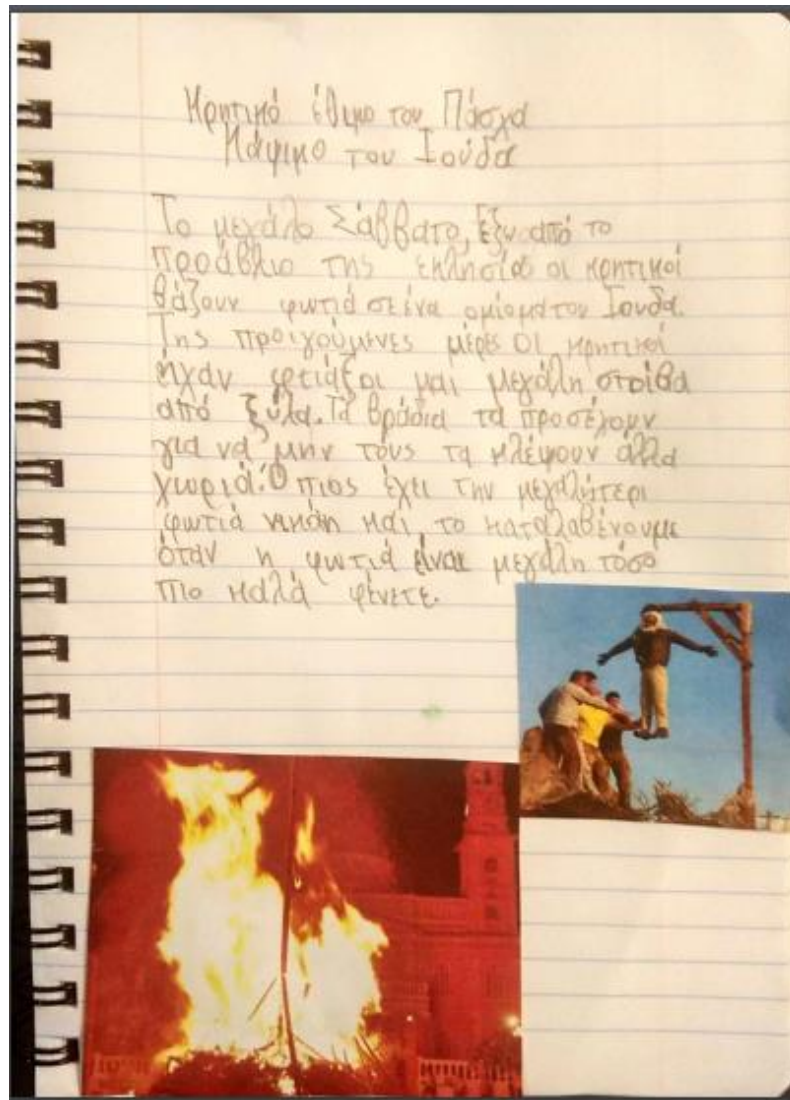 Κρητικό έθιμο του Πάσχα
Κάψιμο του Ιούδα
Το μεγάλο Σάββατο, έξω από το
προάβλιο της εκλησία οι κρητικοί
βάζουν φωτιά σε ένα ομίομα του Ιουδα.
Της προιγούμενες μέρες οι κρητικοί
ήχαν φτιάξοι μαι μεγάλη στοίβα
από ξύλα. Τα βράδια τα προσέχουν
για να μην τους τα κλέψουν άλλα
χωριά. Όπιος έχει την μεγαλήτερι
φωτιά νικάη και το καταλαβένουμε
όταν η φωτιά είναι μεγάλη τόσο
πιο καλά φένετε.